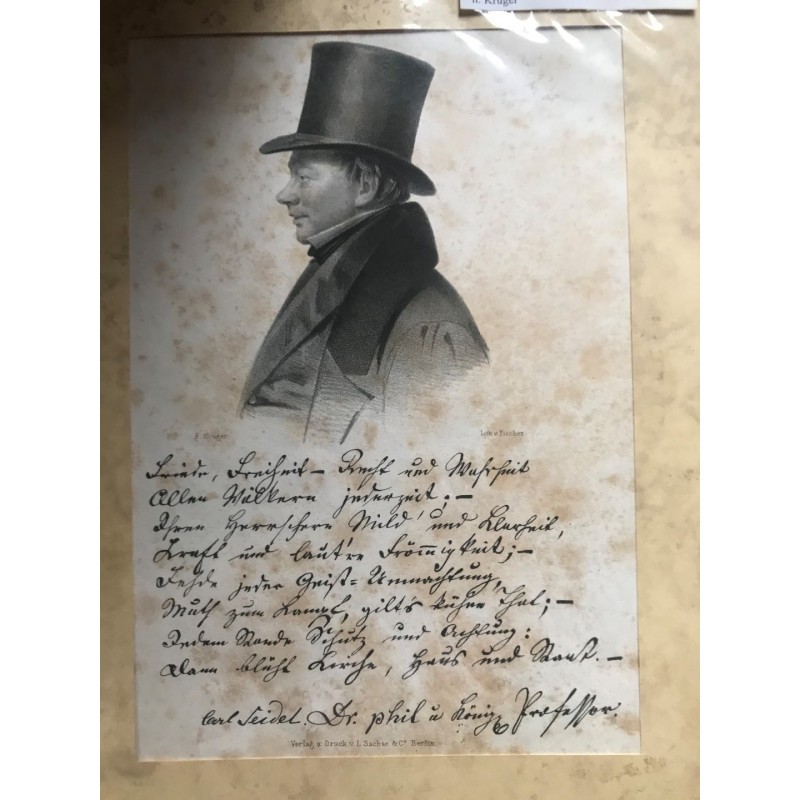 n. Krüger
F. Krüger
Lith. v. Fischer
Friede, Freiheit – Recht und Wahrheit
Allen Völkern jederzeit; –
Ihren Herrschern Mild' und Klarheit,
Kraft und laut're Frömmigkeit; –
Fehde jeder Geist=Umnachtung,
Muth zum Kampf, gilt's kühne That; –
Jedem Stande Schutz und Achtung:
Dann blüht Kirche, Haus und Staat. –
Carl Seidel. Dr. phil u Königl Professor.
Verlag u Druck v. L Sachse & Co. Berlin.